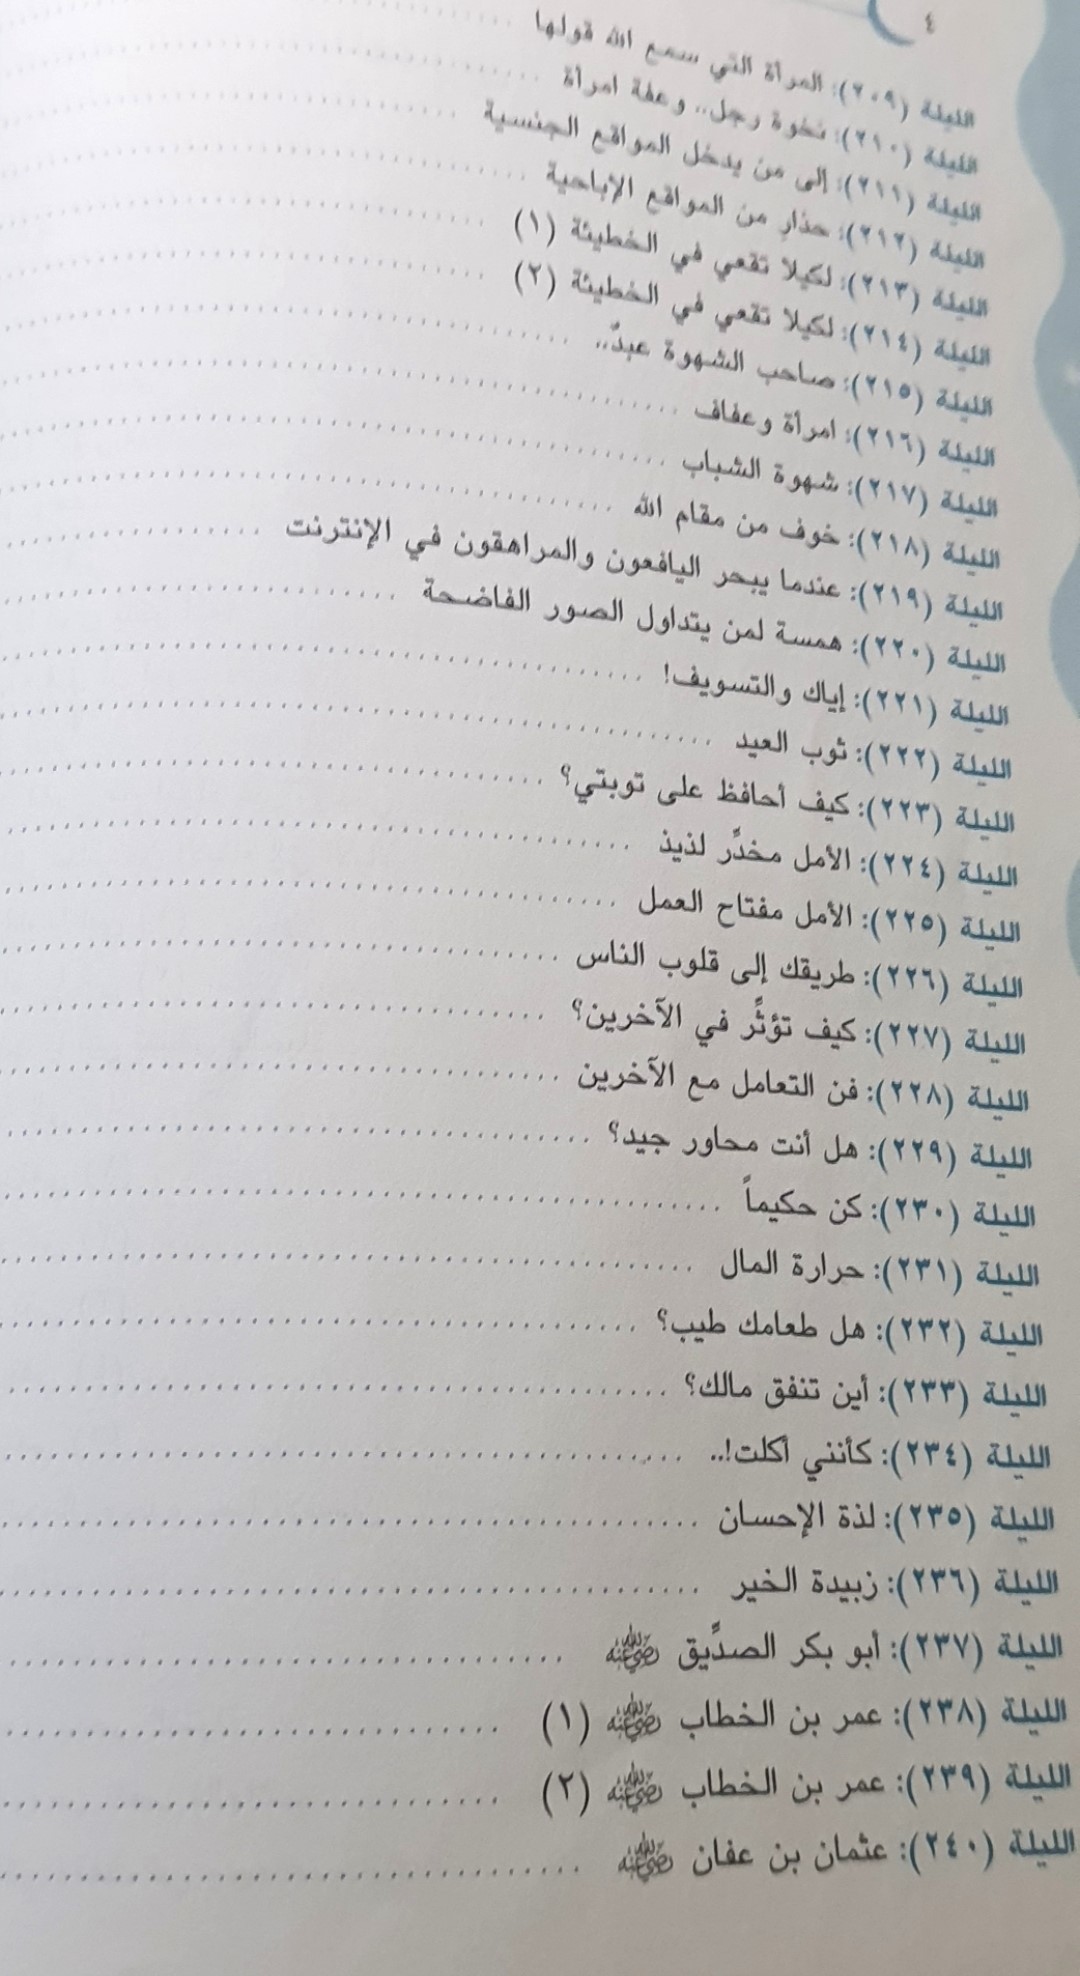 ٤
الليلة (٢٠٩): المرأة التي سمع الله قولها
الليلة (٢١٠): نخوة رجل.. وعفة امرأة
الليلة (٢١١): إلى من يدخل المواقع الجنسية
الليلة (٢١٢): حذارِ من المواقع الإباحية
الليلة (٢١٣): لكيلا تقعي في الخطيئة (١)
الليلة (٢١٤): لكيلا تقعي في الخطيئة (٢)
الليلة (٢١٥): صاحب الشهوة عبدٌ..
الليلة (٢١٦): امرأة وعفاف
الليلة (٢١٧): شهوة الشباب
الليلة (٢١٨): خوف من مقام الله
الليلة (٢١٩): عندما يبحر اليافعون والمراهقون في الإنترنت
الليلة (٢٢٠): همسة لمن يتداول الصور الفاضحة
الليلة (٢٢١): إياك والتسويف!
الليلة (٢٢٢): ثوب العيد
الليلة (٢٢٣): كيف أحافظ على توبتي؟
الليلة (٢٢٤): الأمل مخدِّر لذيذ
الليلة (٢٢٥): الأمل مفتاح العمل
الليلة (٢٢٦): طريقك إلى قلوب الناس
الليلة (٢٢٧): كيف تؤثِّر في الآخرين؟
الليلة (٢٢٨): فن التعامل مع الآخرين
الليلة (٢٢٩): هل أنت محاور جيد؟
الليلة (٢٣٠): كن حكيماً
الليلة (٢٣١): حرارة المال
الليلة (٢٣٢): هل طعامك طيب؟
الليلة (٢٣٣): أين تنفق مالك؟
الليلة (٢٣٤): كأنني أكلت!..
الليلة (٢٣٥): لذة الإحسان
الليلة (٢٣٦): زبيدة الخير
الليلة (٢٣٧): أبو بكر الصدِّيق رضي الله عنه
الليلة (٢٣٨): عمر بن الخطاب رضي الله عنه (١)
الليلة (٢٣٩): عمر بن الخطاب رضي الله عنه (٢)
الليلة (٢٤٠): عثمان بن عفان رضي الله عنه